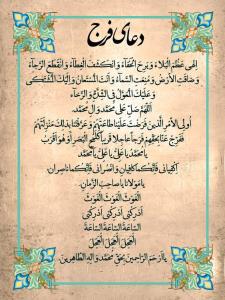 دعای فرج
اِلهي عَظُمَ الْبَلاءُ وَ بَرِحَ الْخَفاءُ وَ انْكَشَفَ الْغِطاءُ وَ انْقَطَعَ الرَّجاءُ
وَ ضاقَتِ الْاَرْضُ وَ مُنِعَتِ السَّماءُ وَ اَنْتَ الْمُسْتَعانُ وَ اِلَيْكَ الْمُشْتَكى
وَ عَلَيْكَ الْمُعَوَّلُ فِي الشِّدَّةِ وَ الرَّخاءِ
اَللّهُمَّ صَلِّ عَلى مُحَمَّدٍ وَ آلِ مُحَمَّدٍ
اُولِي الْاَمْرِ الَّذينَ فَرَضْتَ عَلَيْنا طاعَتَهُمْ وَ عَرَّفْتَنا بِذلِكَ مَنْزِلَتَهُمْ
فَفَرِّجْ عَنّا بِحَقِّهِمْ فَرَجاً عاجِلاً قَريباً كَلَمْحِ الْبَصَرِ اَوْ هُوَ اَقْرَبُ
يا مُحَمَّدُ يا عَلِيُّ يا عَلِيُّ يا مُحَمَّدُ
اِكْفِياني فَاِنَّكُما كافِيانِ وَ انْصُراني فَاِنَّكُما ناصِرانِ
يا مَوْلانا يا صاحِبَ الزَّمانِ
الْغَوْثَ الْغَوْثَ الْغَوْثَ
اَدْرِكْني اَدْرِكْني اَدْرِكْني
السّاعَةَ السّاعَةَ السّاعَةَ
الْعَجَلَ الْعَجَلَ الْعَجَلَ
يا اَرْحَمَ الرّاحِمينَ بِحَقِّ مُحَمَّدٍ وَ آلِهِ الطّاهِرينَ